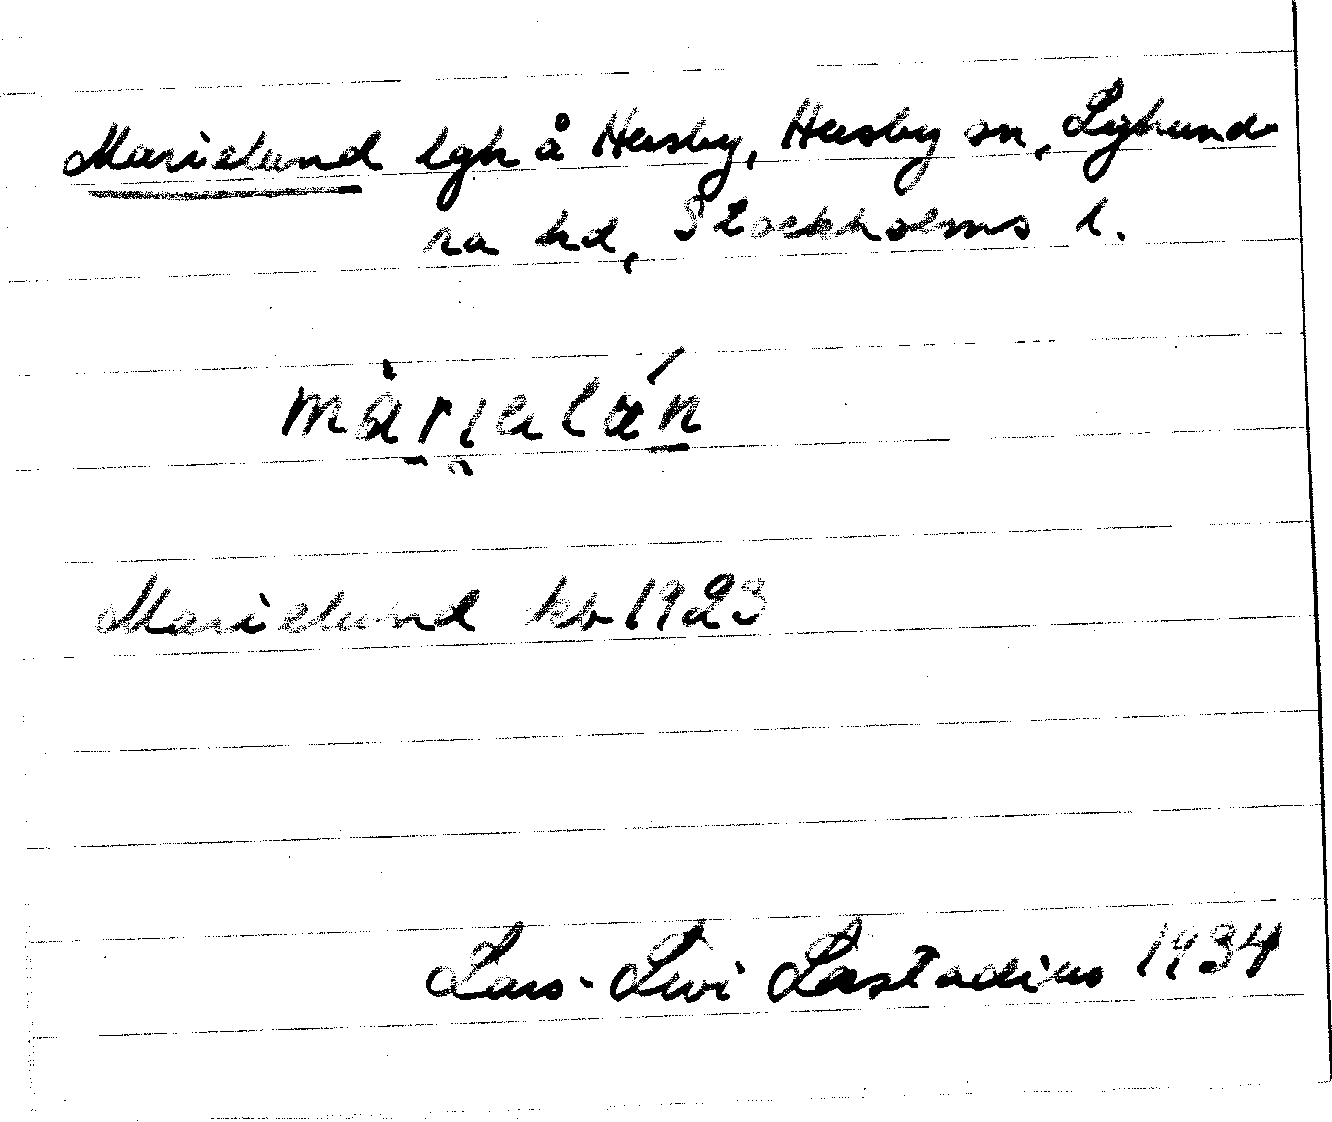 Marielund lgh å Husby, Husby sn, Lyhund-
ra hd, Stockholms l.
Marielund kb 1923
Lars-Levi Læstadius 1934